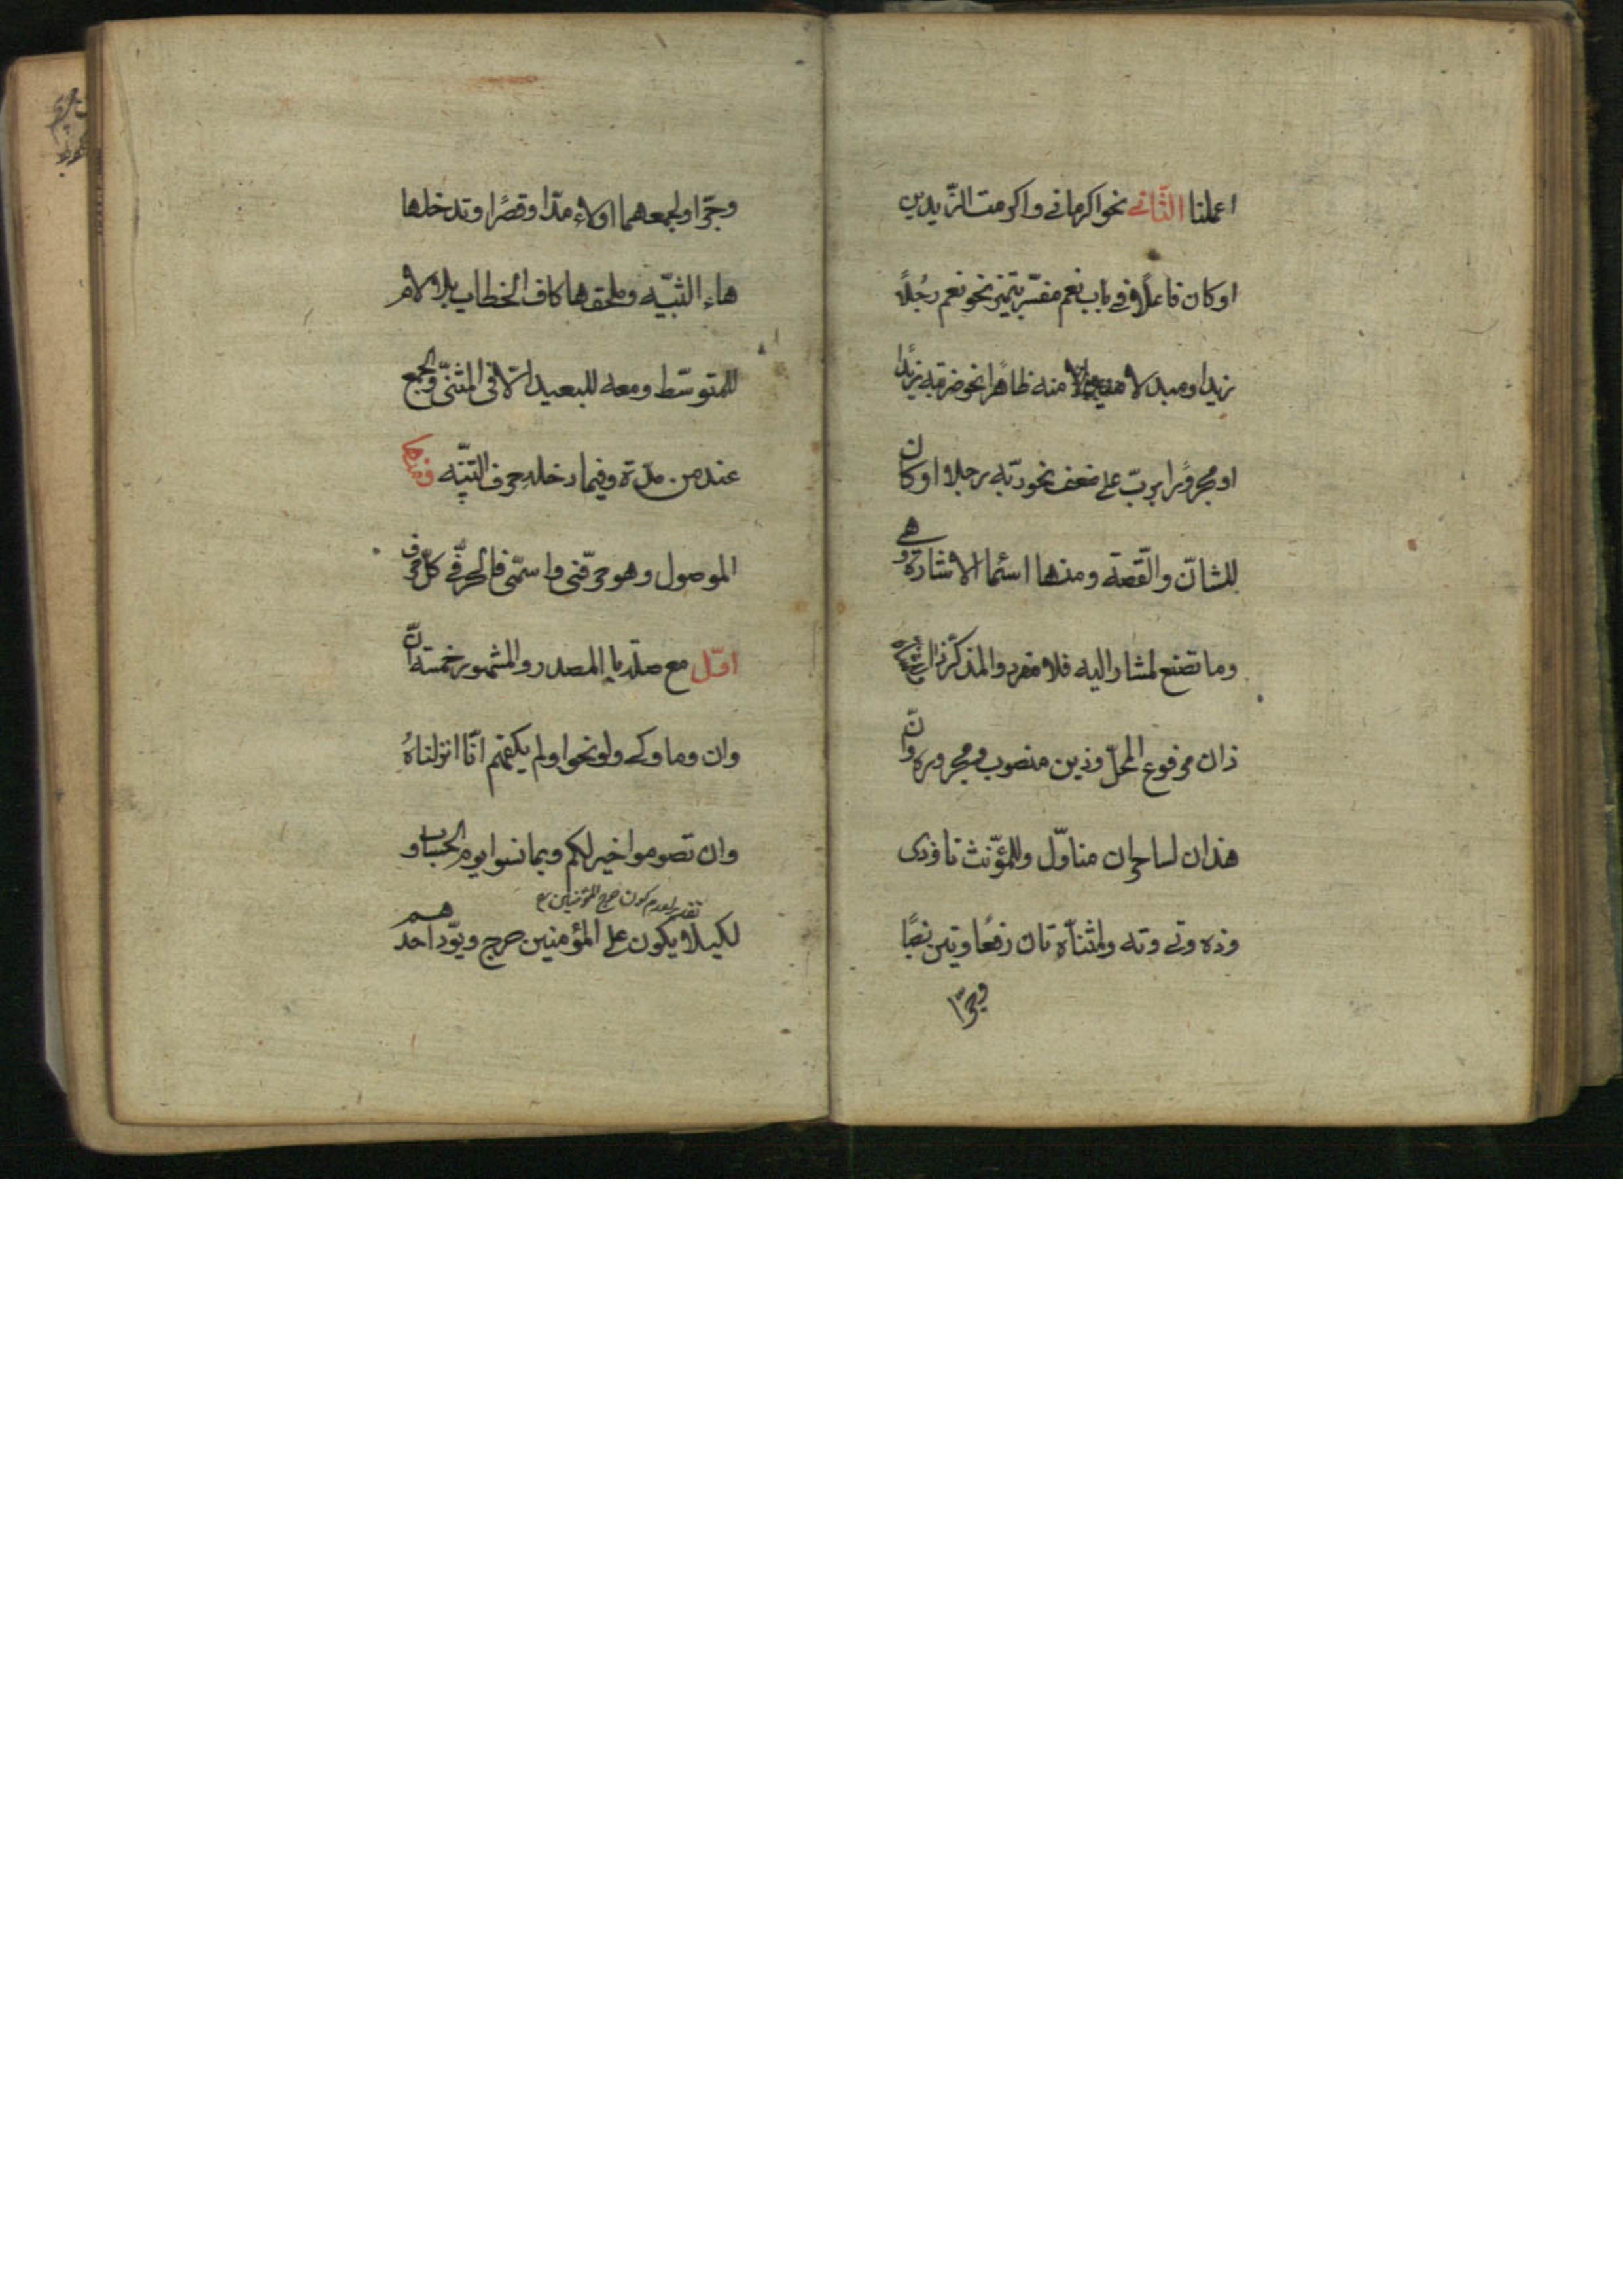 اعملنا الثّانى نحو اكرمانى واكرمت الزّيدين
اوكان فاعلًا فى باب نعم مفسّر بتميز نحو نعم رجُلًا
زيد او مبدلا منه ظاهرًا نحو ضربته زيدًا
او مجرورًا بربّ على ضعف نحو ربّه رجلا اوكان
للشانّ والقصة ومنها اسماء الاشارة وهى
وما تضع لمشار اليه فلا مفرد والمذكّر ذا
ذان مرفوع المحلّ وذين منصوب ومجروره وانّ
هذان لساحران متاوّل وللمؤنّث تا وذى
وذه وتى وته ولمثنّاة تان رفعًا وتين نصبًا
وجرّا
وجرّا ولجمعهما اولاء مدّا وقصرًا وتدخلها
هاء التنبيّه وتلحقها كاف الخطاب بلا لام
للمتوسّط ومعه للبعيد الّا فى المثنّى والجمع
عند من مدّة وفيما دخله حرف التنبّيه ومنها
الموصول وهو حرفىّ واسمّى فالحرفّى كلّ حرف
اوّل مع صلته بالمصدر والمشهور خمسته انّ
وان وما وكى ولو نحو اولم يكفهم انّا انزلناهُ
وان تصوموا خير لكم وبما نسوا يوم الحساب و
تقدير لعدم كون حرج المؤمنين ع
لكيلا يكون على المؤمنين حرج ويودّ احدهم